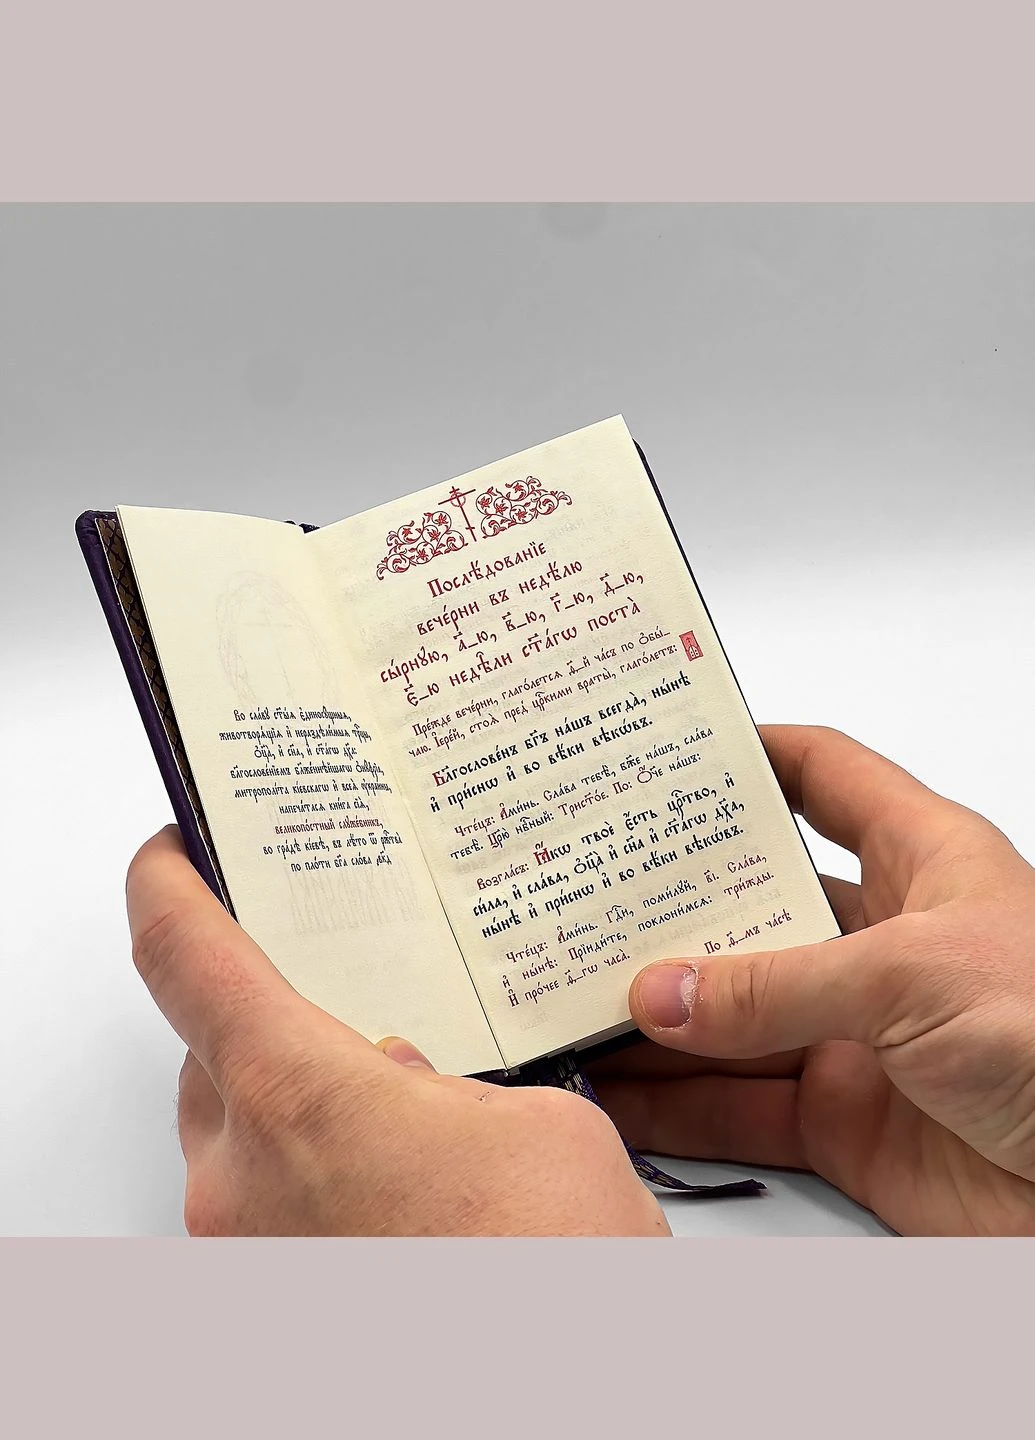 Во сла́вꙋ ст҃ы́ѧ є҆диносꙋ́щныѧ,
животворѧ́щїѧ и҆ нераздѣ́льныѧ трⷪ҇цы,
ѻ҆ц҃а̀, и҆ сн҃а, и҆ ст҃а́гѡ дх҃а:
благослове́нїемъ бл҃же́ннѣйшагѡ ѻ҆нꙋфрі́ѧ,
митрополі́та кі́евскагѡ и҆ всеѧ̀ ᲂу҆краи́ны,
напеча́тасѧ кни́га сїѧ̀,
великопо́стный слꙋже́бникъ,
во гра́дѣ кі́евѣ, въ лѣ́то ѿ рⷤ҇тва̀
по пло́ти бг҃а сло́ва
Послѣ́дованїе
вече́рни въ недѣ́лю
сы́рнꙋю, а҃_ю, в҃_ю, г҃_ю, д҃_ю,
є҃_ю недѣ́ли ст҃а́гѡ поста̀
Пре́жде вече́рни, глаго́летсѧ ѳ҃_й ча́съ по ѻ҆бы́_
чаю. І҆ере́й, стоѧ̀ пред̾ цр҃кими враты̀, глаго́летъ:
Бл҃гослове́нъ бг҃ъ на́шъ всегда̀, ны́нѣ
и҆ при́снѡ и҆ во вѣ́ки вѣкѡ́въ.
Чте́цъ: А҆ми́нь. Сла́ва тебѣ̀, бж҃е на́шъ, сла́ва
тебѣ̀. Цр҃ю̀ нбⷭ҇ный: Трист҃о́е. По: Ѻ҆́ч҃е на́шъ:
Возгла́съ: Ꙗ҆́кѡ твоѐ є҆́сть црⷭ҇тво, и҆
си́ла, и҆ сла́ва, ѻ҆ц҃а̀ и҆ сн҃а и҆ ст҃а́гѡ дх҃а,
ны́нѣ и҆ при́снѡ и҆ во вѣ́ки вѣкѡ́въ.
Чте́цъ: А҆ми́нь. Гдⷭ҇и, поми́лꙋй, в҃і. Сла́ва,
и҆ ны́нѣ: Прїиди́те, поклони́мсѧ: три́жды.
И҆ про́чее ѳ҃_гѡ часа̀.
По ѳ҃_мъ часѣ̀